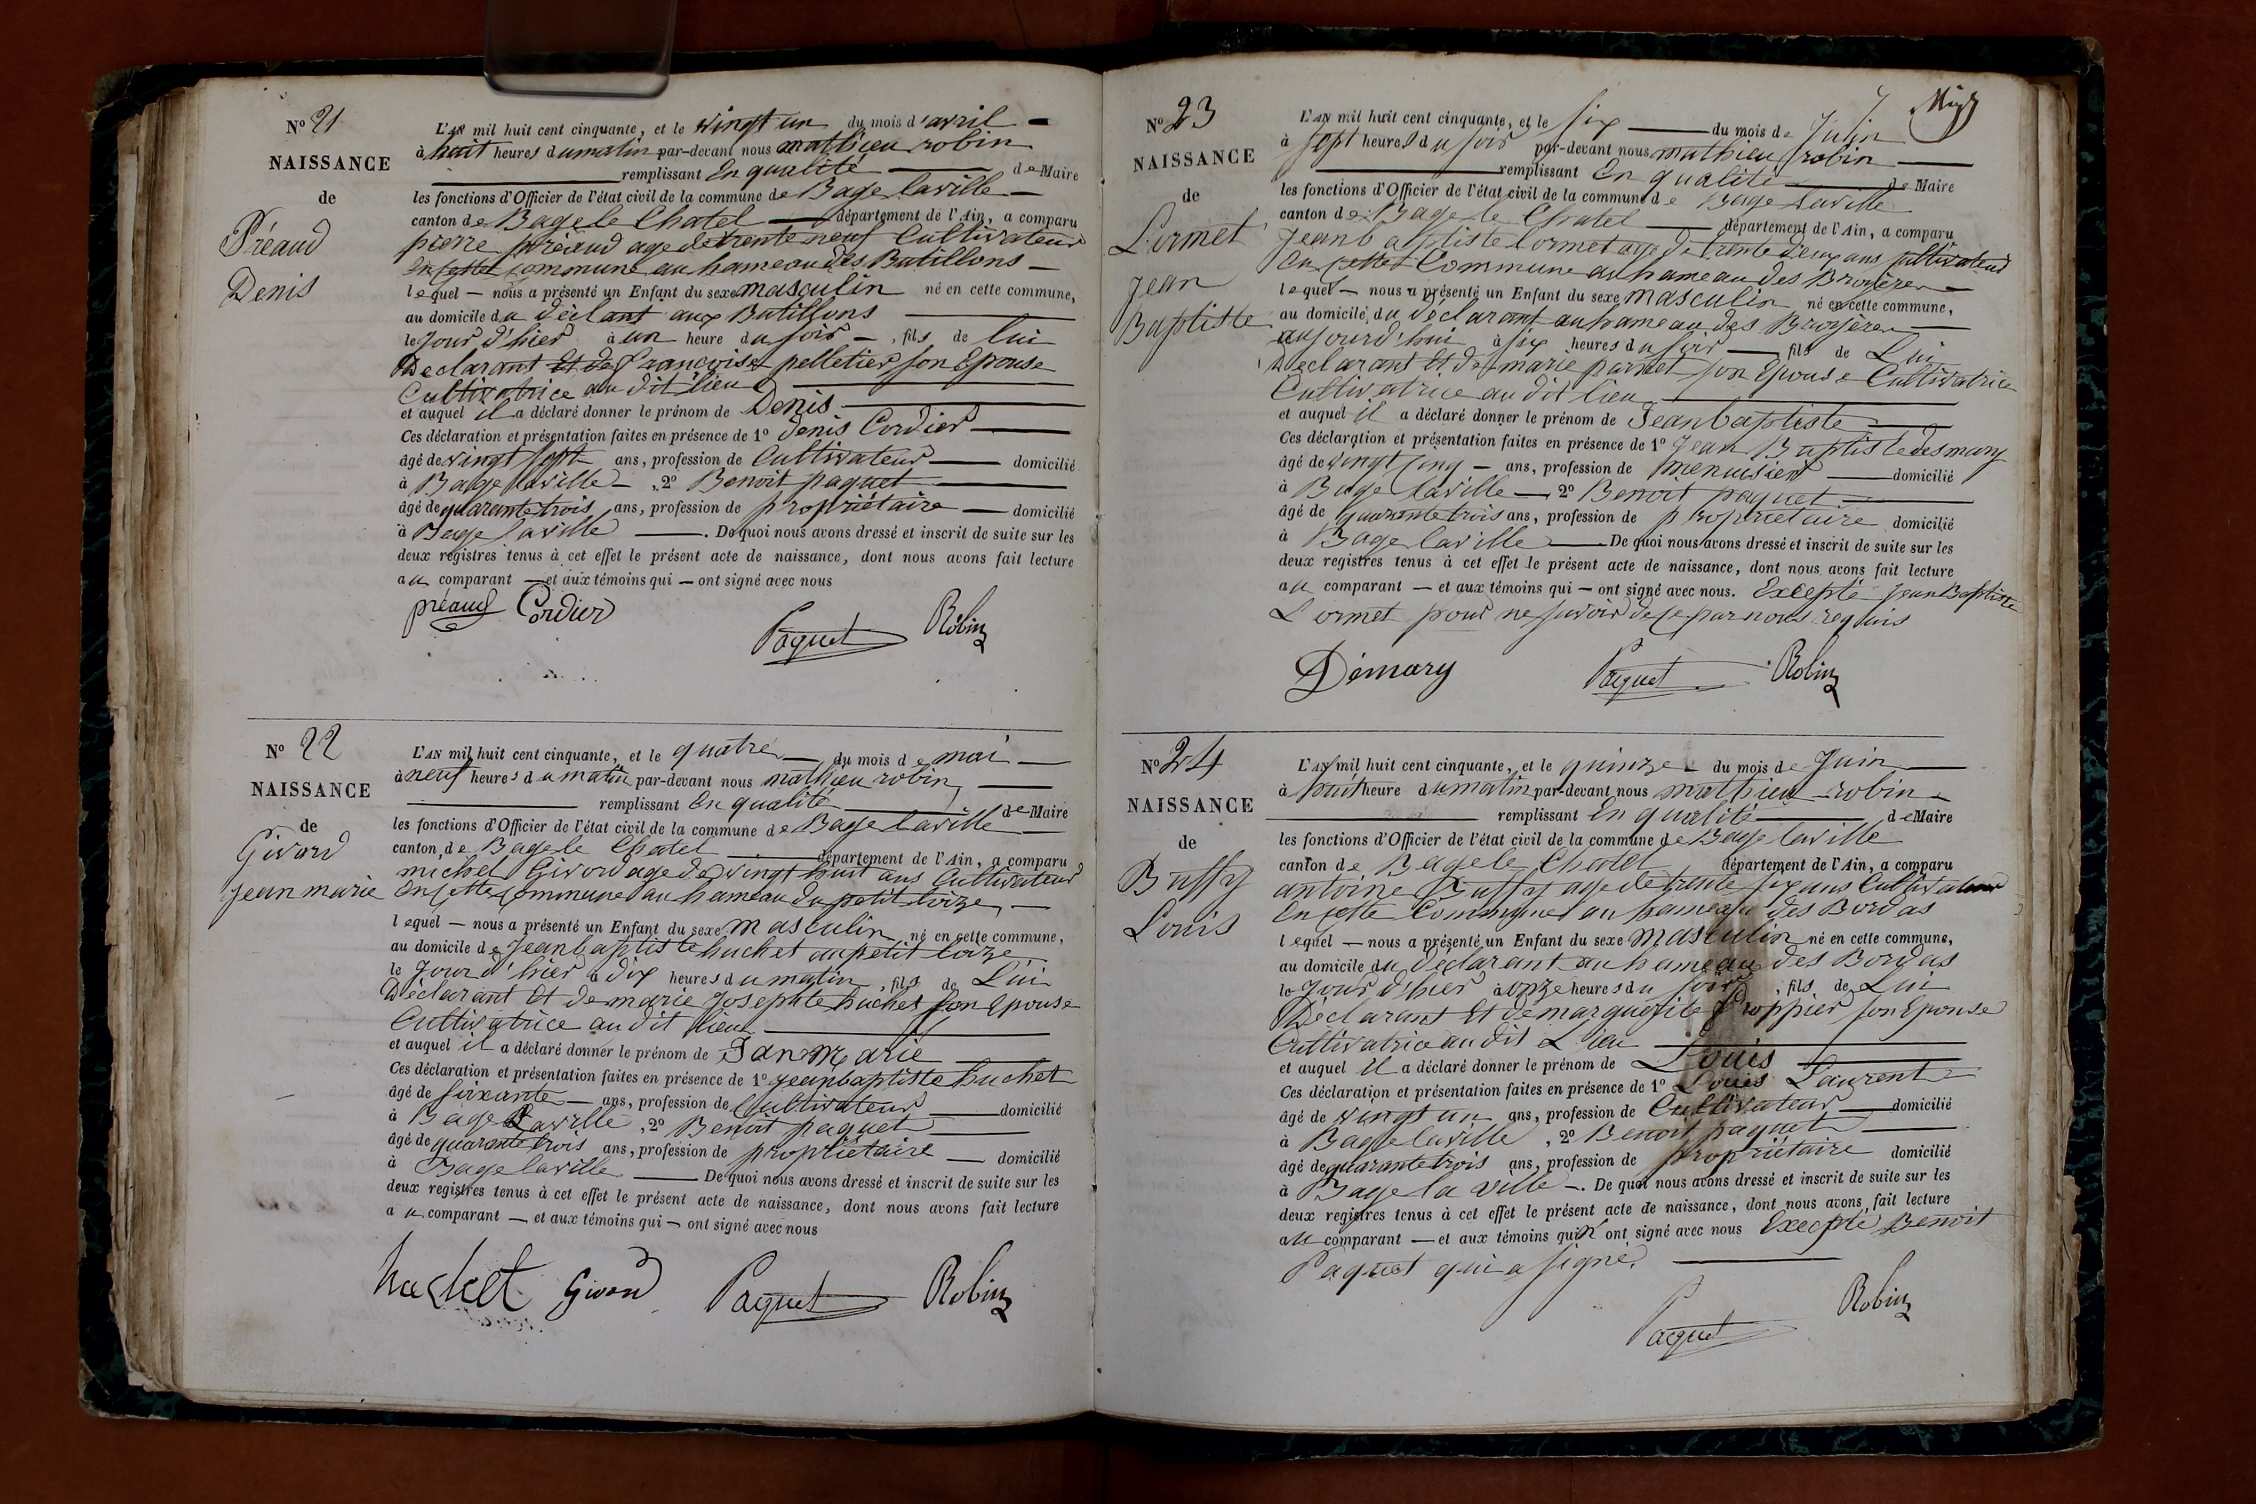 N° 21
NAISSANCE
de
Préaud
Denis
L'AN mil huit cent cinquante, et le vingt un du mois d'avril
à huit heures du matin par-devant nous mathieu robin
remplissant En qualité de Maire
les fonctions d'Officier de l'état civil de la commune de Bage laville
canton de Bage le Chatel département de l'Ain, a comparu
pierre préaud age de trente neuf Cultivateur
En cette commune au hameau des Butillons
lequel nous a présenté un Enfant du sexe masculin né en cette commune,
au domicile du déclant aux Butillons
le Jour d'hier à un heure du soir, fils de lui
Declarant Et de francoise pelletier son Epouse
Cultivatrice au dit lieu
et auquel il a déclaré donner le prénom de Denis
Ces déclaration et présentation faites en présence de 1° denis Cordier
âgé de vingt sept ans, profession de Cultivateur domicilié
à Bage laville, 2° Benoit paquet
âgé de quarante trois ans, profession de propriétaire domicilié
à Bage laville. De quoi nous avons dressé et inscrit de suite sur les
deux registres tenus à cet effet le présent acte de naissance, dont nous avons fait lecture
au comparant et aux témoins qui ont signé avec nous
préaud Cordier
Paquet Robin
N° 22
NAISSANCE
de
Givord
jean marie
L'AN mil huit cent cinquante, et le quatre du mois de mai
à neuf heures du matin par-devant nous mathieu robin
remplissant En qualité de Maire
les fonctions d'Officier de l'état civil de la commune de Bage laville
canton de Bage le Chatel département de l'Ain, a comparu
michel Givord age de vingt huit ans Cultivateur
En cette commune au hameau du petit loize
lequel nous a présenté un Enfant du sexe masculin né en cette commune,
au domicile de Jean baptiste huchet au petit loize
le Jour d'hier à dix heures du matin, fils de Lui
Déclarant Et de marie Josephte huchet son Epouse
Cultivatrice au dit lieu
et auquel il a déclaré donner le prénom de Jan Marie
Ces déclaration et présentation faites en présence de 1° jean baptiste huchet
âgé de soixante ans, profession de Cultivateur domicilié
à Bage Laville, 2° Benoit paquet
âgé de quarante trois ans, profession de propriétaire domicilié
à Bage laville De quoi nous avons dressé et inscrit de suite sur les
deux registres tenus à cet effet le présent acte de naissance, dont nous avons fait lecture
au comparant et aux témoins qui ont signé avec nous
huchet Givord Paquet Robin
N° 23
NAISSANCE
de
Lormet
jean
Baptiste
7
L'AN mil huit cent cinquante, et le six du mois de Juin
à sept heures du soir par-devant nous mathieu robin
remplissant En qualité de Maire
les fonctions d'Officier de l'état civil de la commune de Bage Laville
canton de Bage le Chatel département de l'Ain, a comparu
Jean baptiste Lormet age de trente deux ans Cultivateur
En cette Commune au hameau des Broyères
lequel nous a présenté un Enfant du sexe masculin né en cette commune,
au domicile du déclarant au hameau des Broyères
aujourd'hui à six heures du soir fils de Lui
Declarant Et de marie parnet son Epouse Cultivatrice
Cultivatrice au dit lieu
et auquel il a déclaré donner le prénom de Jean baptiste
Ces déclaration et présentation faites en présence de 1° Jean Baptiste desmary
âgé de vingt cinq ans, profession de menuisier domicilié
à Bage laville 2° Benoit paquet
âgé de quarante trois ans, profession de propriétaire domicilié
à Bage laville De quoi nous avons dressé et inscrit de suite sur les
deux registres tenus à cet effet le présent acte de naissance, dont nous avons fait lecture
au comparant et aux témoins qui ont signé avec nous. Excepté jean Baptiste
Lormet pour ne savoir de ce par nous requis
Démary Paquet Robin
N° 24
NAISSANCE
de
Buffy
Louis
L'AN mil huit cent cinquante, et le quinze du mois de Juin
à huit heure du matin par-devant nous mathieu robin
remplissant En qualité de Maire
les fonctions d'Officier de l'état civil de la commune de Bage laville
canton de Bage le Chatel département de l'Ain, a comparu
antoine Buffy age de trente six ans Cultivateur
En cette Commune au hameau des Bordas
lequel nous a présenté un Enfant du sexe masculin né en cette commune,
au domicile du déclarant au hameau des Bordas
le Jour d'hier à onze heures du soir, fils de Lui
Déclarant Et de marguerite Proppier son Epouse
Cultivatrice au dit Lieu
et auquel il a déclaré donner le prénom de Louis
Ces déclaration et présentation faites en présence de 1° Louis Laurent
âgé de vingt un ans, profession de Cultivateur domicilié
à Bage laville, 2° Benoit paquet
âgé de quarante trois ans, profession de propriétaire domicilié
à Bage la ville. De quoi nous avons dressé et inscrit de suite sur les
deux registres tenus à cet effet le présent acte de naissance, dont nous avons fait lecture
au comparant et aux témoins qui n'ont signé avec nous Excepté Benoit
Paquet qui a signé.
Paquet Robin